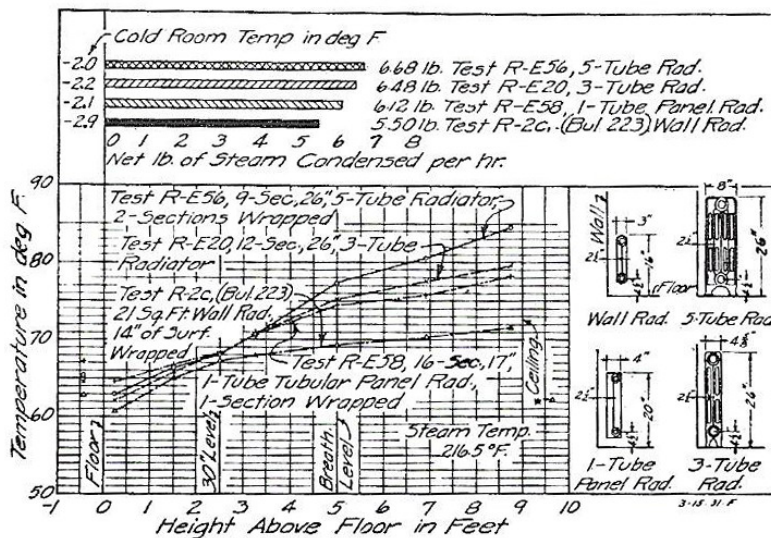 Cold Room Temp in deg F.
-2.0 6.68 lb. Test R-E56, 5-Tube Rad.
-2.2 6.48 lb. Test R-E20, 3-Tube Rad.
-2.1 6.12 lb. Test R-E58, 1-Tube, Panel Rad.
-2.9 5.50 lb. Test R-2c, (Bul. 223) Wall Rad.
0 1 2 3 4 5 6 7 8
Net lb. of Steam Condensed per hr.
Temperature in deg F.
90
80
70
60
50
Test R-E56, 9-Sec, 26", 5-Tube Radiator
2-Sections Wrapped
Test R-E20, 12-Sec, 26", 3-Tube
Radiator
Test R-2c, (Bul. 223)
21 Sq. Ft. Wall Rad,
14" of Surf.
Wrapped
Test R-E58, 16-Sec, 17",
1-Tube Tubular Panel Rad,
1-Section Wrapped
Steam Temp.
216.5°F.
Floor
30" Level
Breath.
Level
Ceiling
-1 0 1 2 3 4 5 6 7 8 9 10
Height Above Floor in Feet
Wall
3"
16"
Floor
Wall Rad.
8"
26"
5-Tube Rad.
4"
20"
1-Tube
Panel Rad.
26"
3-Tube
Rad.
3-15-31-F